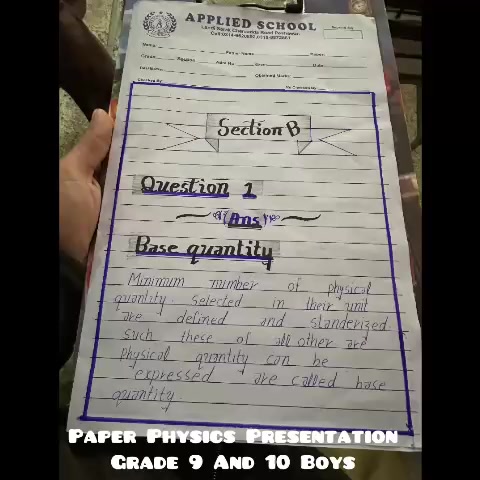 APPLIED SCHOOL
Name
Father Name
Paper
Grade
Section
Adm No
Date
Obtained Marks
Checked By
Section B
Question 1
(Ans)
Base quantity
Minimum number of physical
quantity selected in their unit
are defined and standerized
such these of all other are
physical quantity can be
expressed are called base
quantity.
PAPER PHYSICS PRESENTATION
GRADE 9 AND 10 BOYS